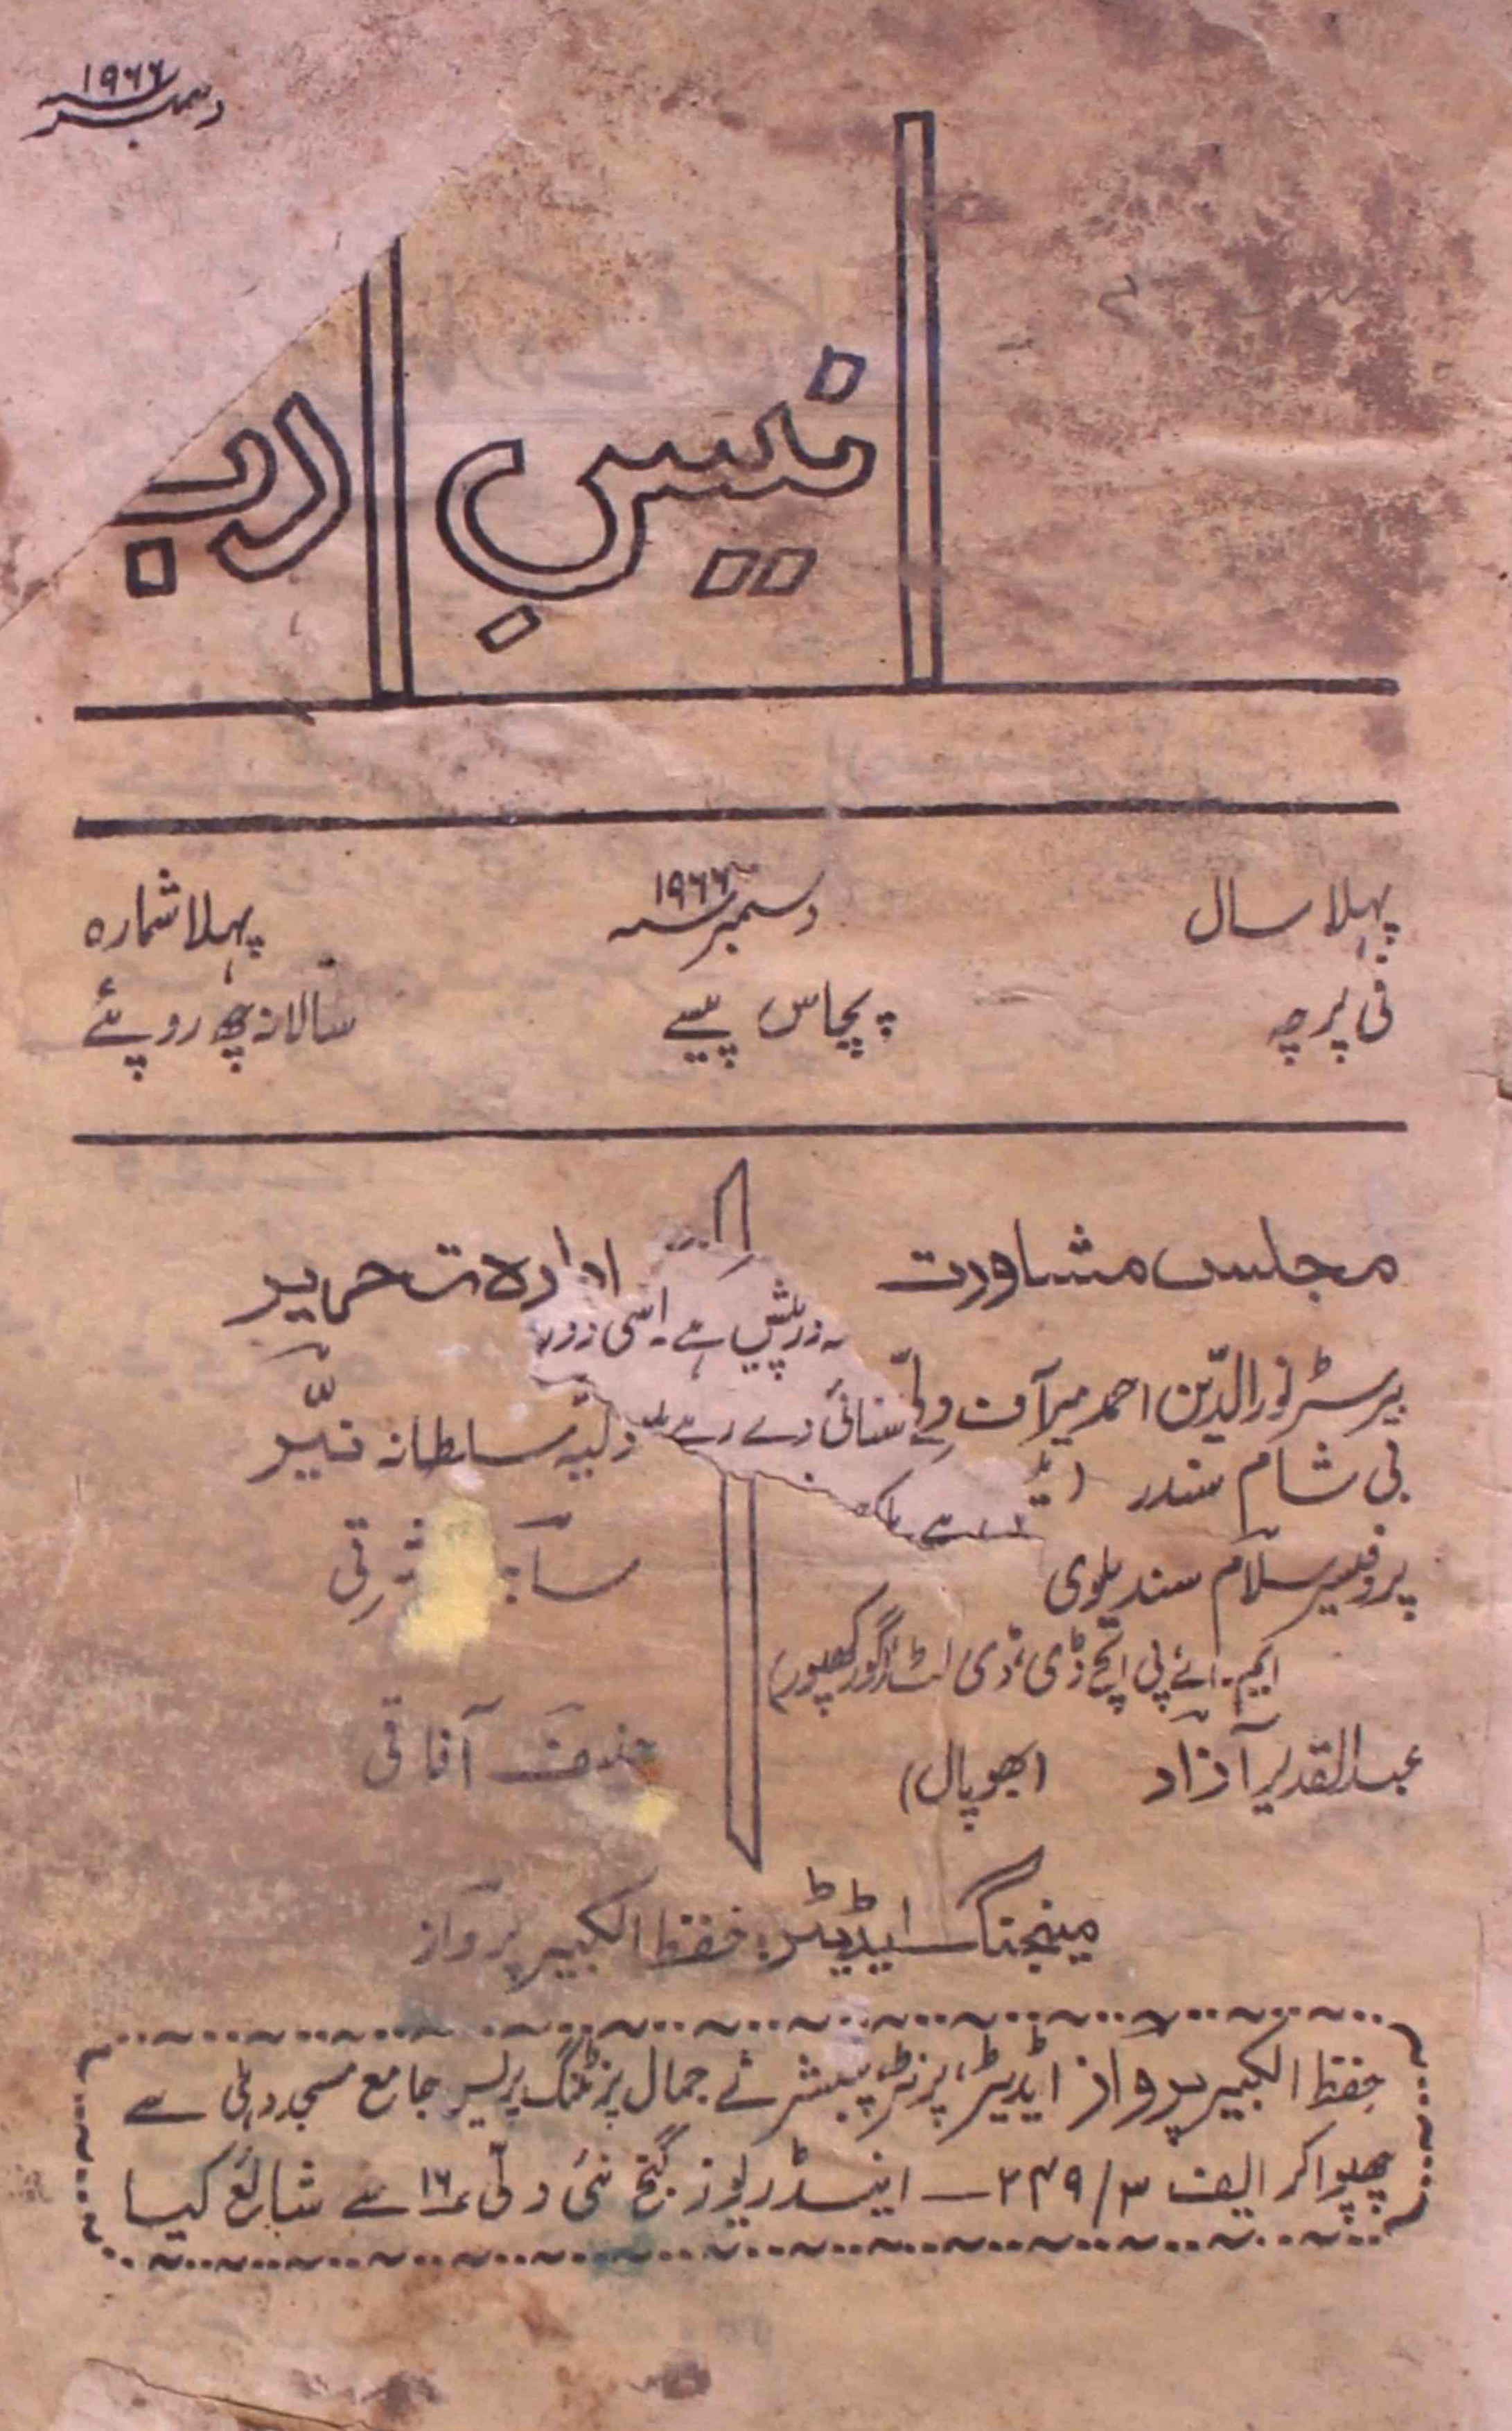 دسمبر ۱۹۶۶
انیسِ ادب
پہلا سال دسمبر ۱۹۶۶ء پہلا شمارہ
فی پرچہ پچاس پیسے سالانہ چھ روپئے
مجلس مشاورت
بیرسٹر نورالدّین احمد میر آف دلّی
بی شام سندر
پروفیسر سلام سندیلوی
ایم۔اے پی ایچ ڈی، ڈی لٹ (گورکھپور)
عبدالقدیر آزاد (بھوپال)
ادارہ تحریر
سلطانہ نیّر
آفاقی
درپیش ہے۔ اسی
سنائی دے رہے
مینجنگ ایڈیٹر: حفظ الکبیر پرواز
حفظ الکبیر پرواز ایڈیٹر، پرنٹر، پبلشر نے جمال پرنٹنگ پریس جامع مسجد دہلی سے
چھپوا کر ایف ۲۴۹/۳ — اینڈریوز گنج نئی دلّی ۱۶ سے شائع کیا